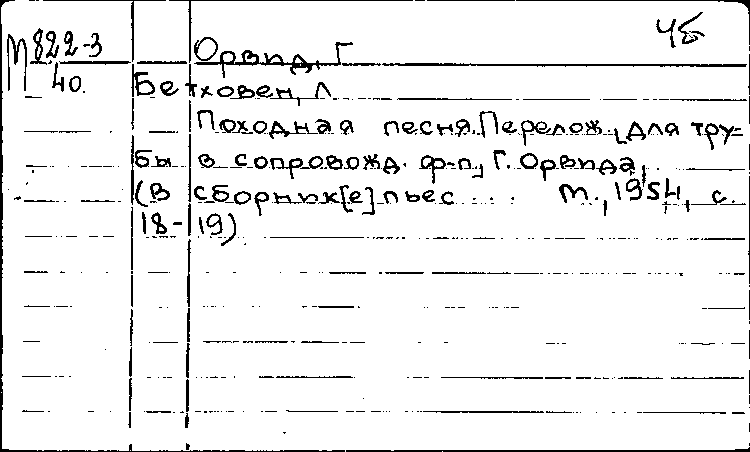 45
М 822-3
40.
Орвид, Г
Бетховен, Л
Походная песня. Перелож. для тру-
бы в сопровожд. ф-п, Г. Орвида,
(В сборник[е] пьес ... М., 1954, с.
18-19)